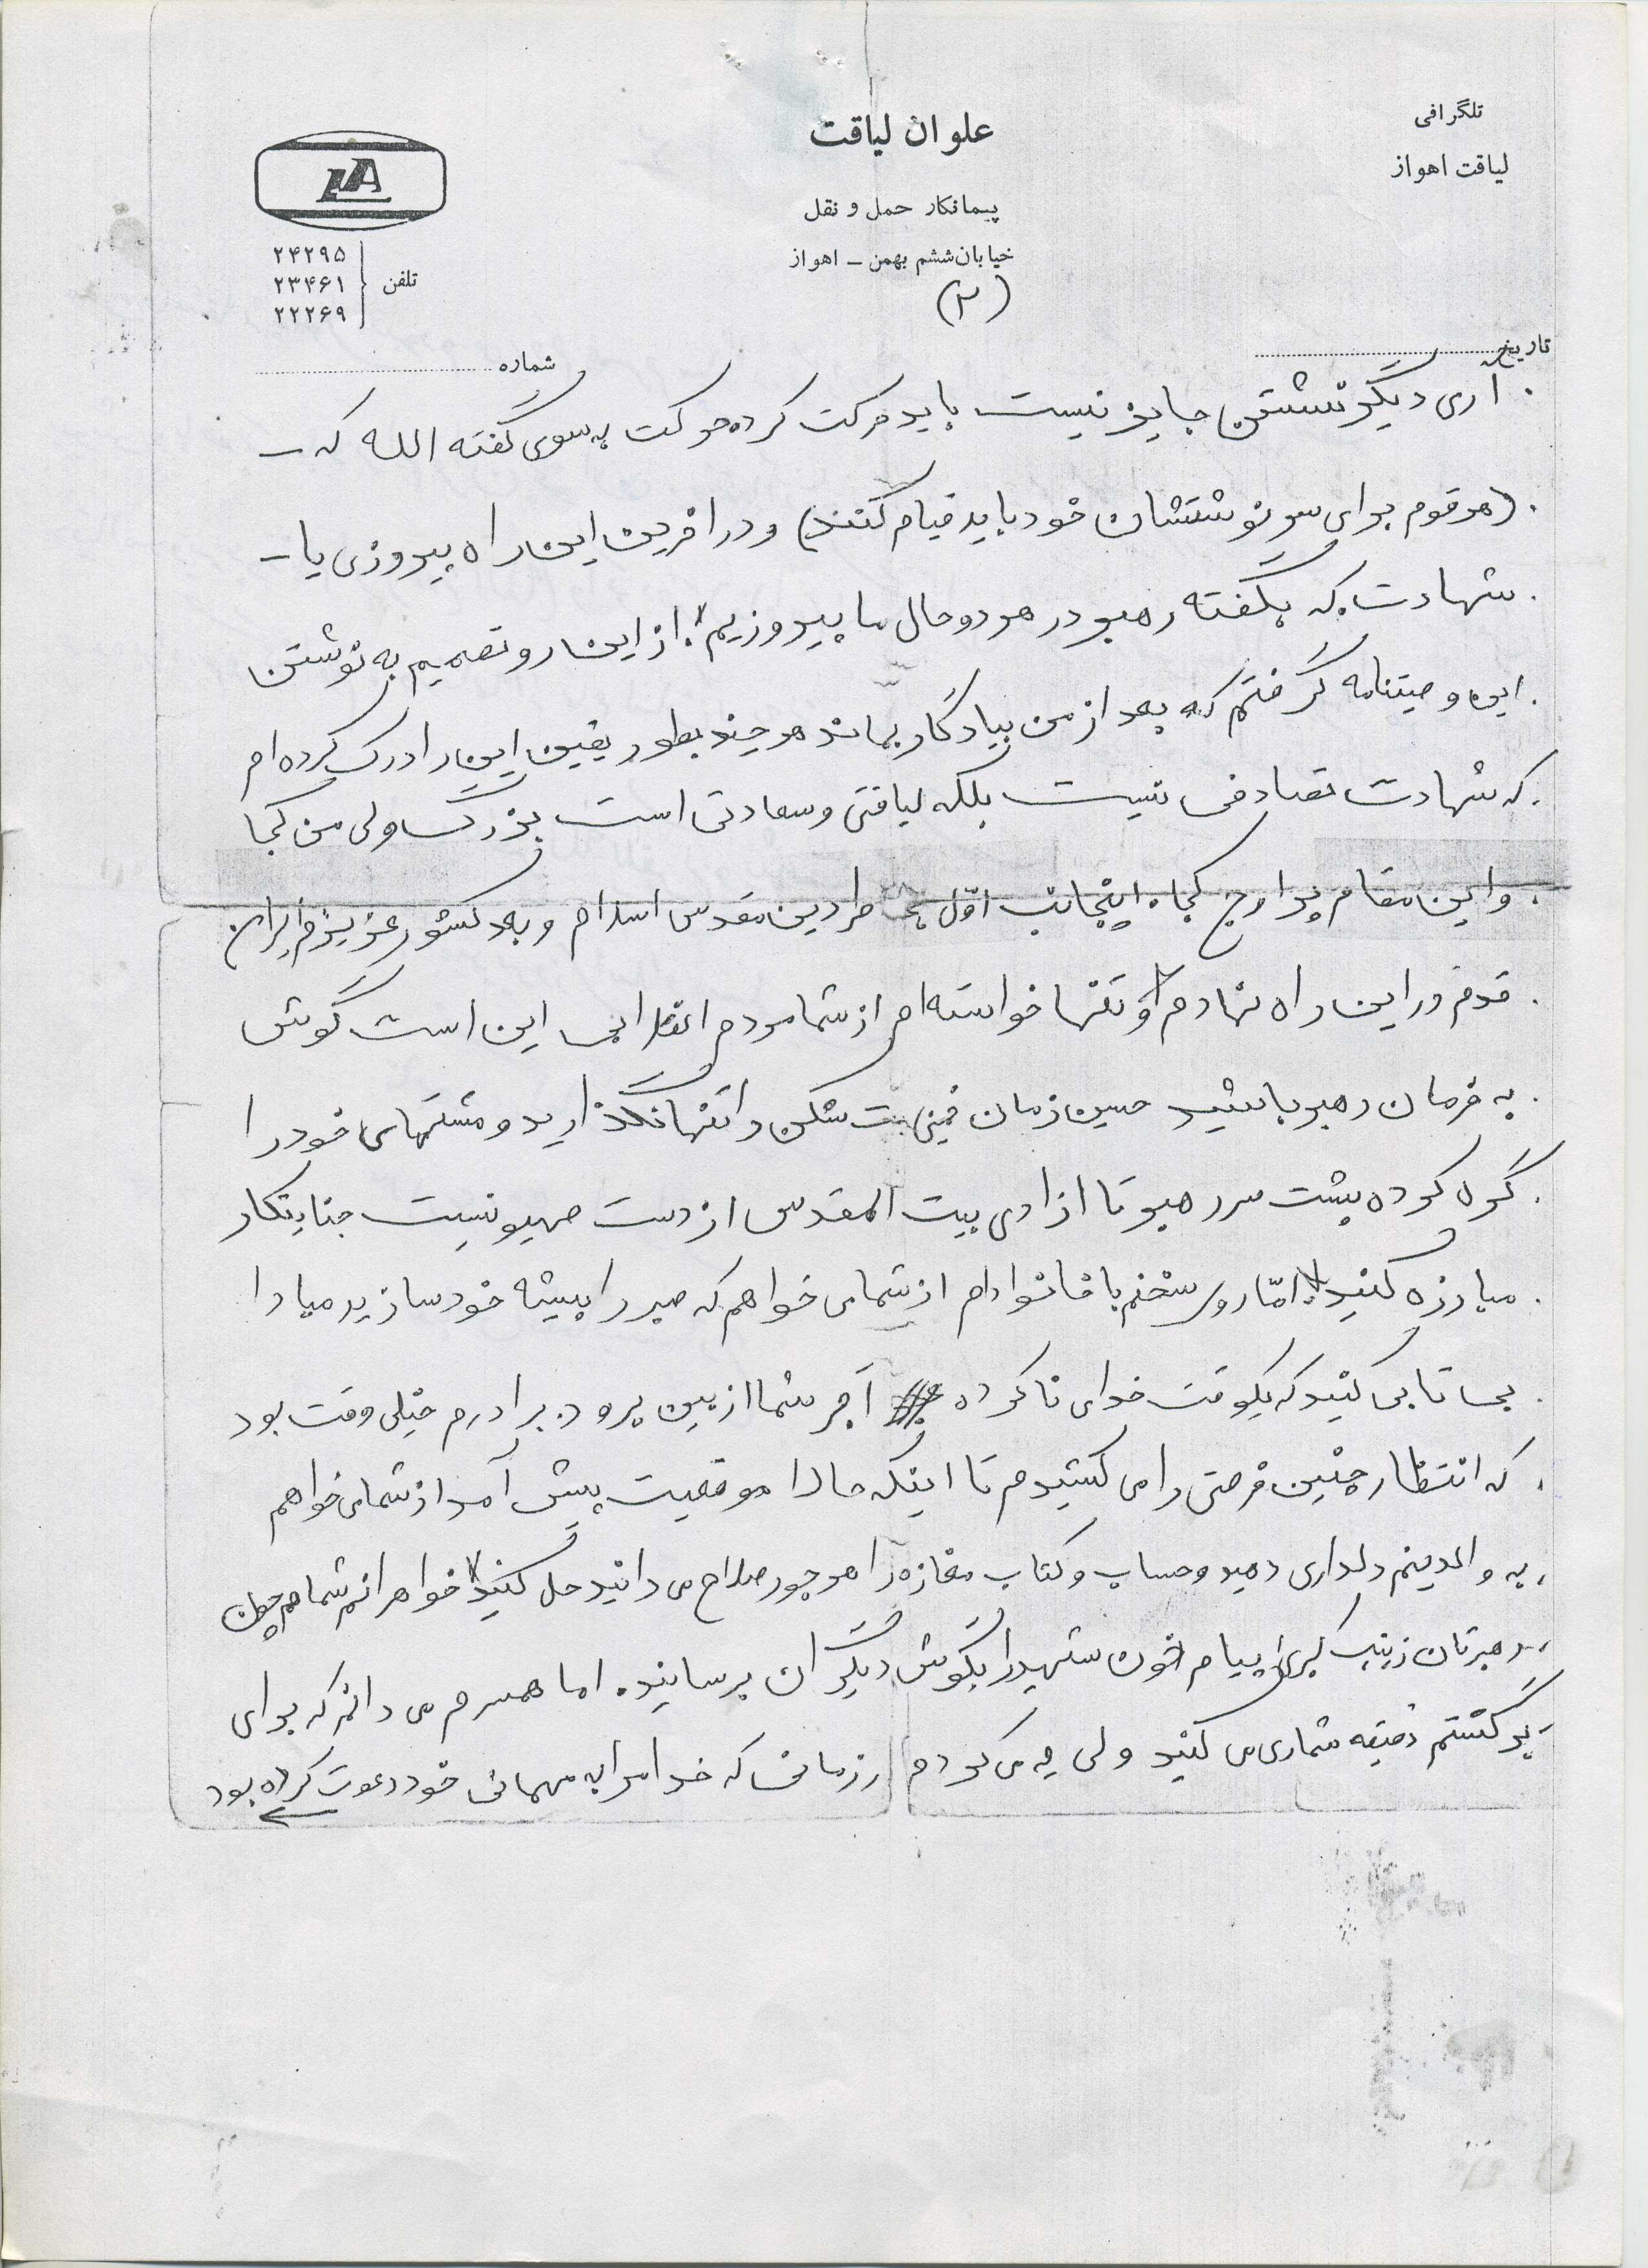 تلگرافی
لیاقت اهواز
علوان لیاقت
پیمانکار حمل و نقل
خیابان ششم بهمن - اهواز
(۲)
تلفن
۲۴۲۹۵
۲۳۴۶۱
۲۲۲۶۹
تاریخ
شماره
آری دیگر نشستن جایز نیست باید حرکت کرد، حرکت به سوی گفته الله که -
(هر قوم برای سرنوشتشان خود باید قیام کنند) و در آخرین این راه پیروزی یا -
شهادت که بگفته رهبر در هر دو حال ما پیروزیم. از این رو تصمیم به نوشتن
این وصیتنامه گرفتم که بعد از من بیادگار بماند هر چند بطور یقین این را درک کرده‌ام
که شهادت تصادفی نیست بلکه لیاقتی و سعادتی است بزرگ ولی من کجا
و این مقام پر ارج کجا، اینجانب اوّل بخاطر دین مقدس اسلام و بعد کشور عزیزم ایران
قدم در این راه نهادم و تنها خواسته‌ام از شما مردم انقلابی این است گوش
به فرمان رهبر باشید حسین زمان خمینی بت شکن را تنها نگذارید و مشتهای خود را
گره کرده پشت سر رهبر تا ازادی بیت المقدس از دست صهیونیست جنایتکار
مبارزه کنید. امّا روی سخنم با خانوادام از شما می خواهم که صبر را پیشه خود سازید مبادا
بی‌تابی کنید که یکوقت خدای ناکرده اجر شما از بین برود. برادرم خیلی وقت بود
که انتظار چنین فرصتی را می کشیدم تا اینکه حالا موقعیت پیش آمد از شما می خواهم
به والدینم دلداری دهید و حساب و کتاب مغازه را هر جور صلاح می دانید حل کنید خواهرانم شما هم چون
رهبرتان زینب کبری پیام خون شهید را بگوش دیگران برسانید. اما همسرم می دانم که برای
برگشتم دقیقه شماری می کنید ولی چه می کردم زمانی که خدا مرا به مهمانی خود دعوت کرده بود